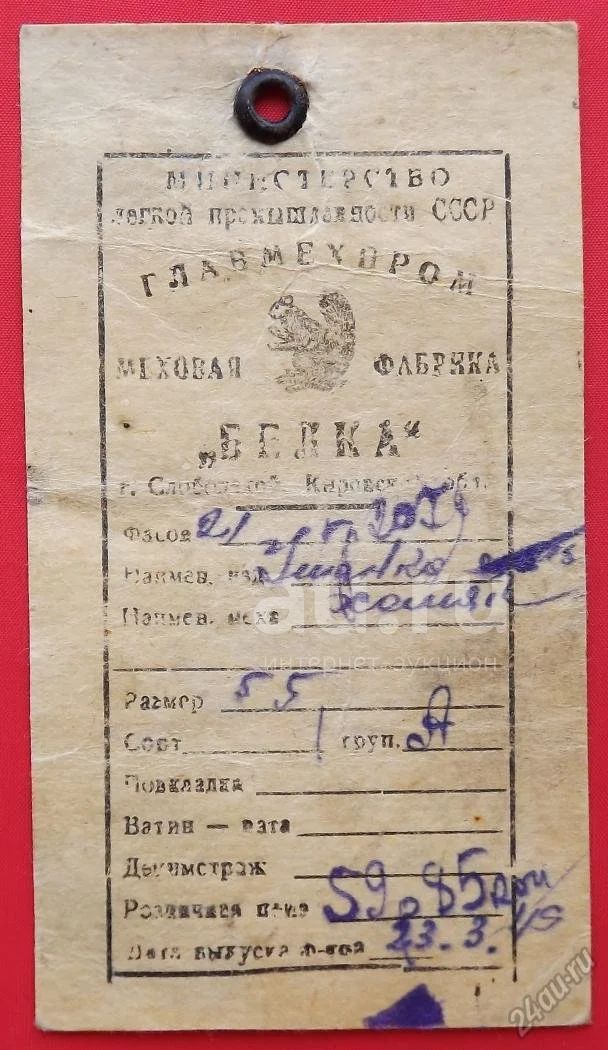 МИНИСТЕРСТВО
легкой промышленности СССР
ГЛАВМЕХПРОМ
МЕХОВАЯ ФАБРИКА
„БЕЛКА“
г. Слободской Кировской обл.
Фасон 21
Наимен. изд. Ушанка
Наимен. меха хомяк
au.ru
интернет аукцион
Размер 55
Сорт 1 груп. А
Подкладка
Ватин — вата
Дециметраж
Розничная цена 59.85
Дата выпуска ф-кой 23.3.
24au.ru